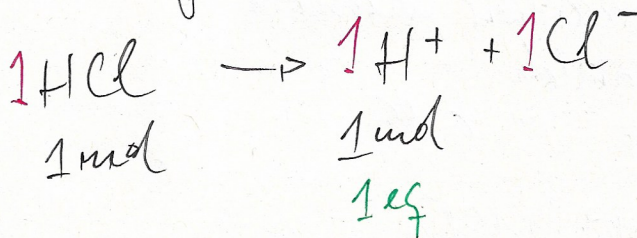 1HCl → 1H⁺ + 1Cl⁻
1mol 1mol
1eq